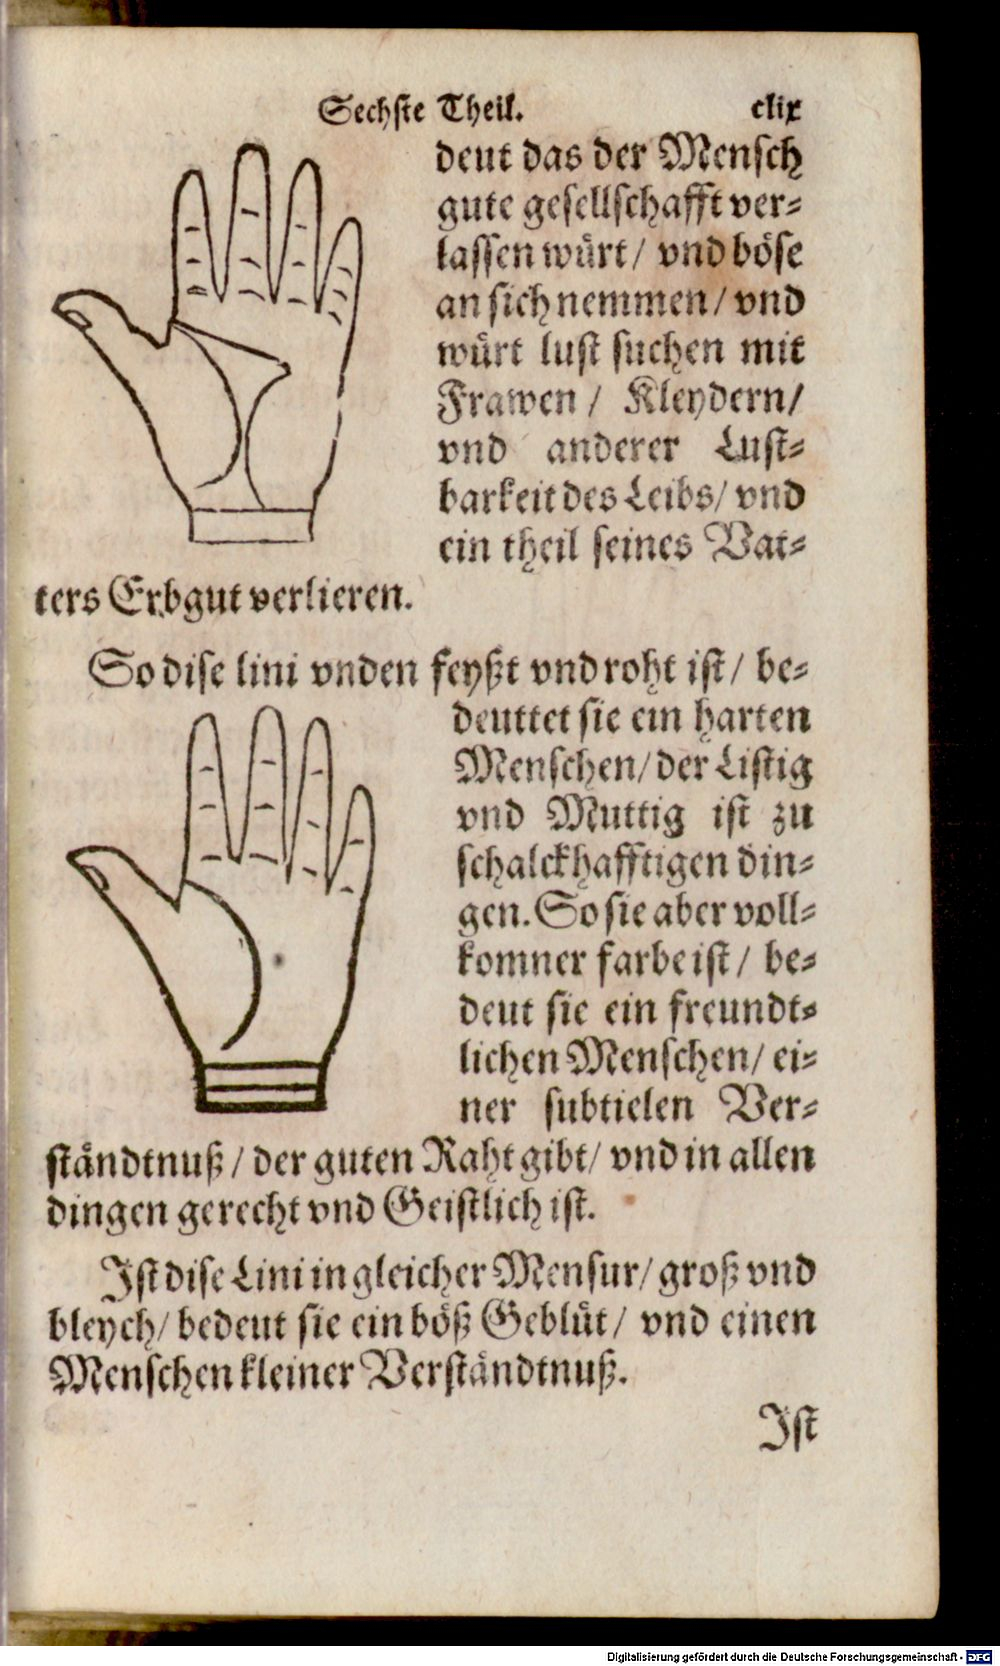 Sechste Theil. clix
deut das der Mensch
gute gesellschafft ver-
lassen würt / vnd böse
an sich nemmen / vnd
würt lust suchen mit
Frawen / Kleydern /
vnd anderer Lust-
barkeit des Leibs / vnd
ein theil seines Vat-
ters Erbgut verlieren.
So dise lini vnden feyßt vnd roht ist / be-
deuttet sie ein harten
Menschen / der Listig
vnd Muttig ist zu
schalckhafftigen din-
gen. So sie aber voll-
komner farbe ist / be-
deut sie ein freundt-
lichen Menschen / ei-
ner subtielen Ver-
ständtnuß / der guten Raht gibt / vnd in allen
dingen gerecht vnd Geistlich ist.
Ist dise Lini in gleicher Mensur / groß vnd
bleych / bedeut sie ein böß Geblüt / vnd einen
Menschen kleiner Verständtnuß.
Ist
Digitalisierung gefördert durch die Deutsche Forschungsgemeinschaft - DFG